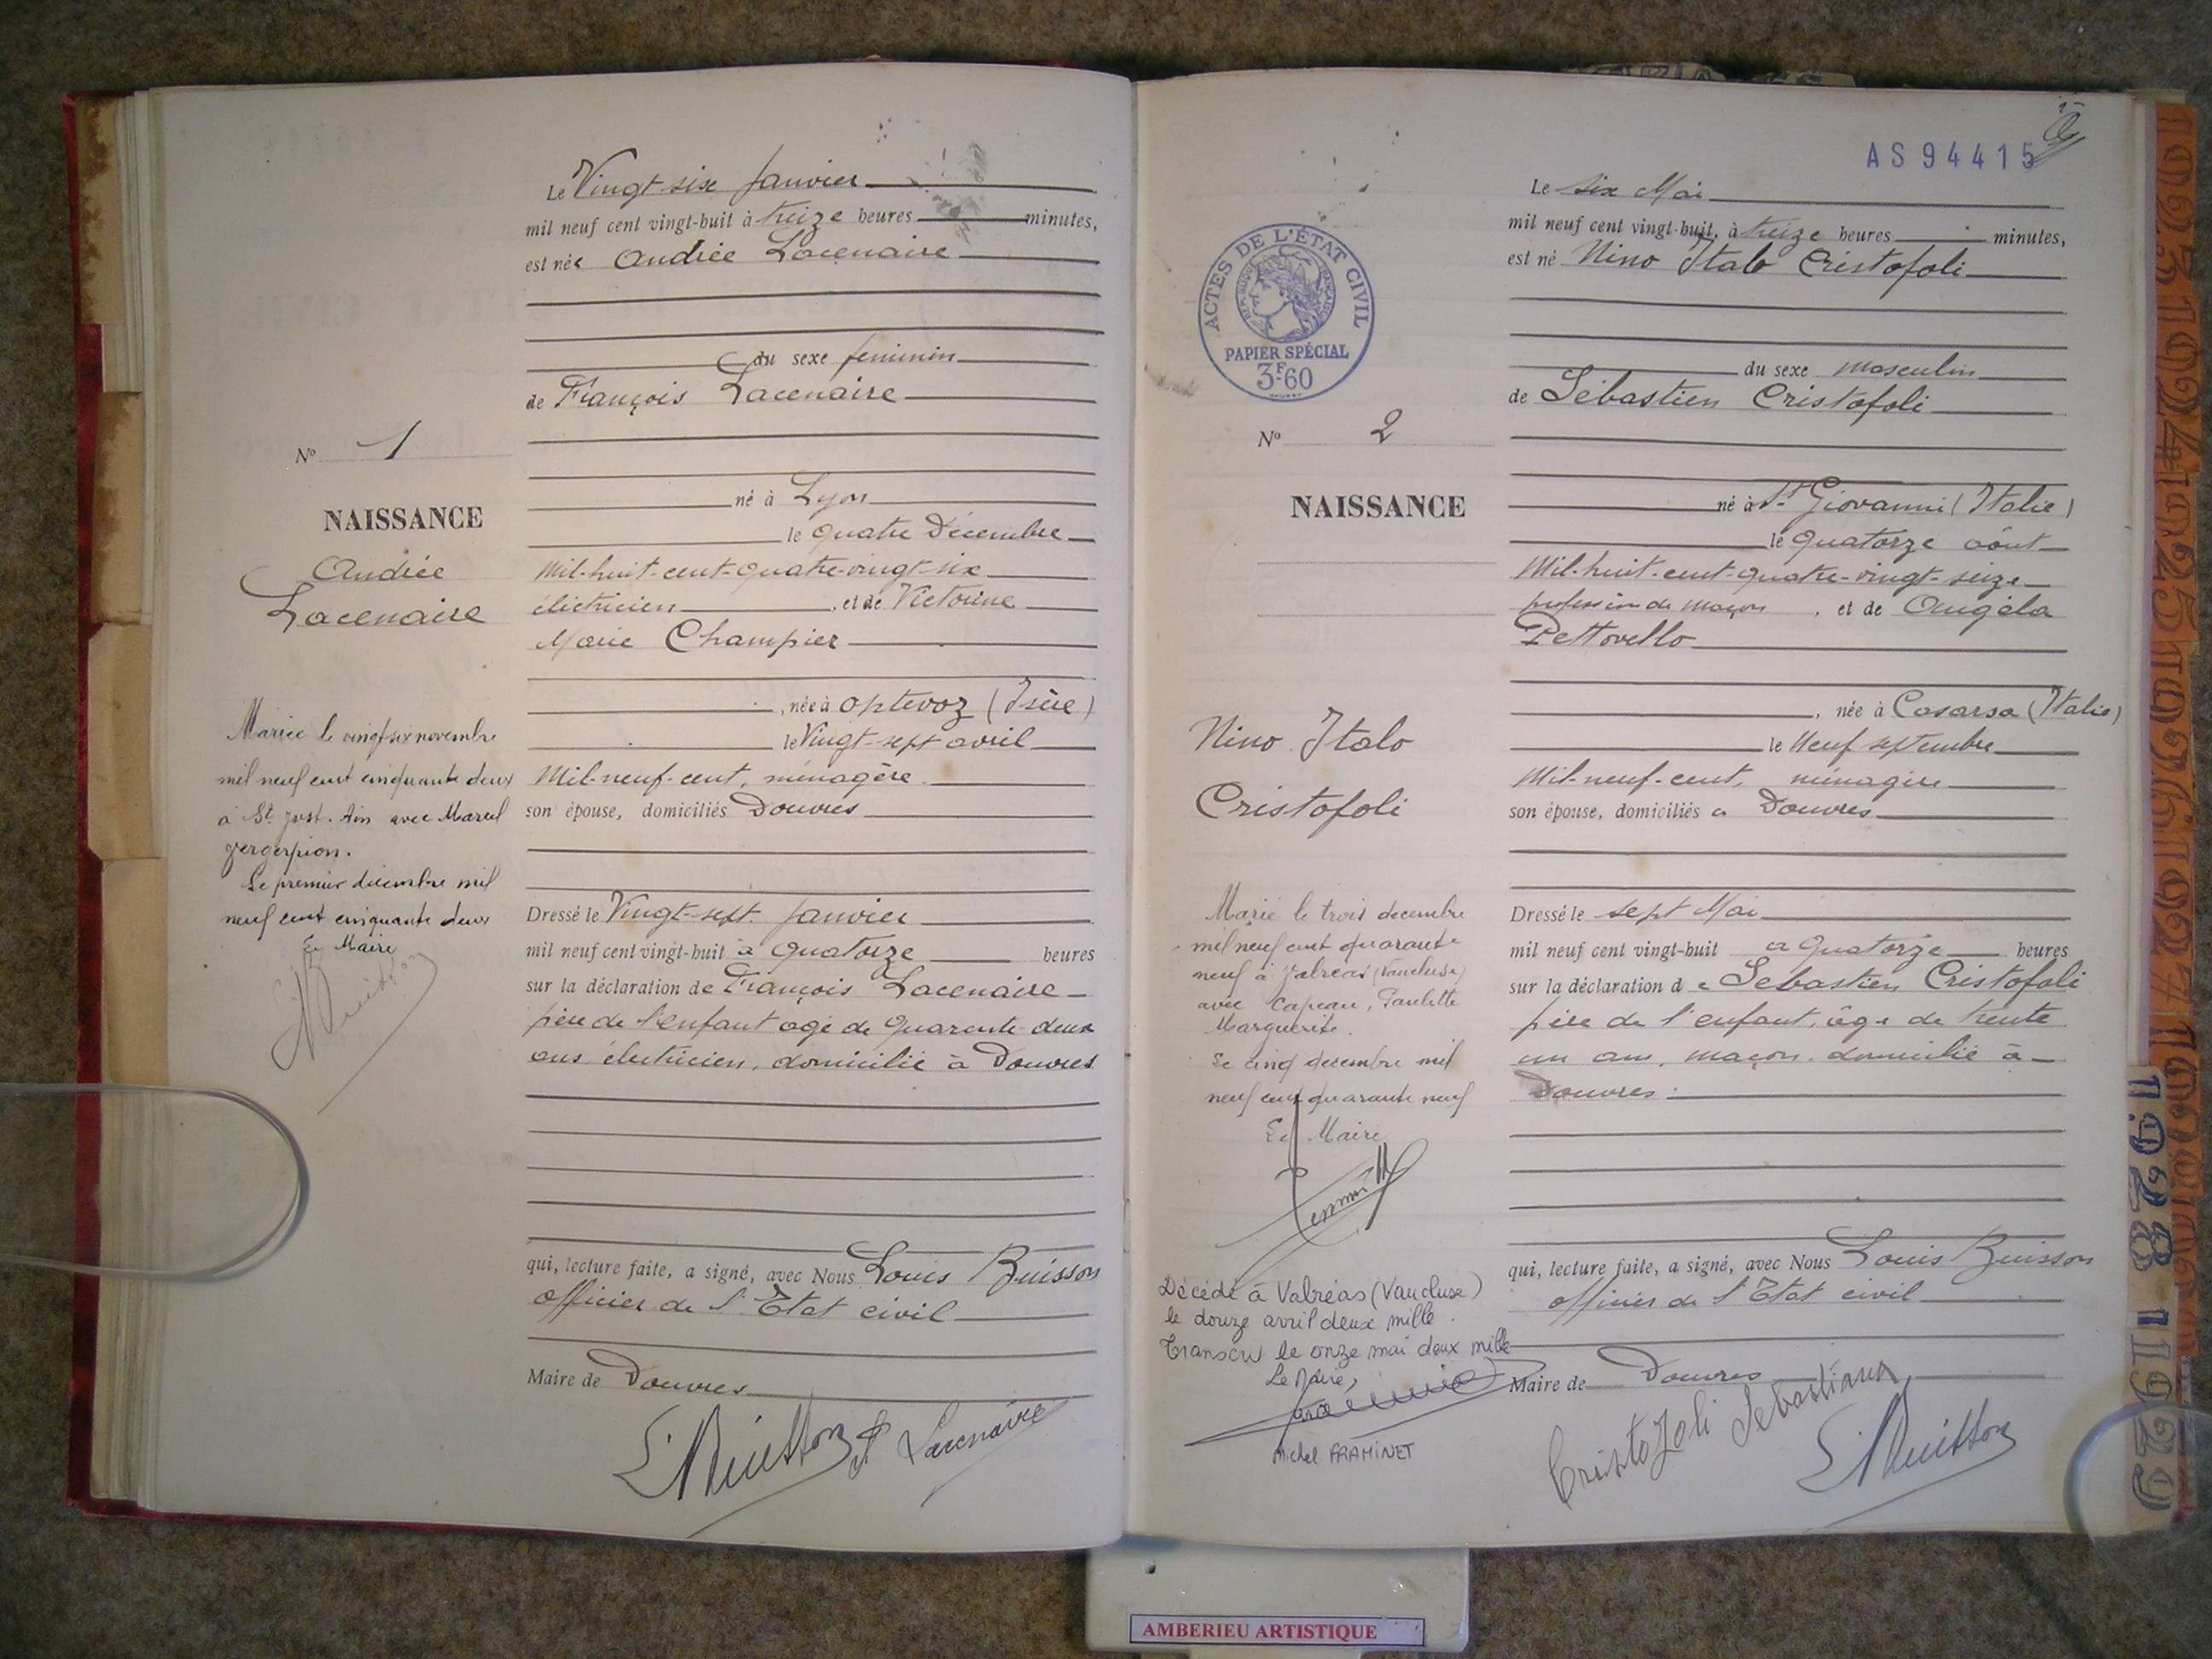 Le Vingt-six Janvier
mil neuf cent vingt-huit à treize heures minutes,
est née Andrée Lacenaire
du sexe feminin
de François Lacenaire
N° 1
né à Lyon
NAISSANCE
le quatre Décembre
Andrée
Mil-huit-cent-quatre-vingt-six
Lacenaire
électricien , et de Victorine
Marie Champier
, née à Optevoz (Isère)
le Vingt-sept avril
Mil-neuf-cent, ménagère
son épouse, domiciliés Douvres
Mariée le vingt six novembre
mil neuf cent cinquante deux
à St Just. Ain avec Marcel
Le premier décembre mil
neuf cent cinquante deux
Le Maire
Dressé le Vingt-sept Janvier
mil neuf cent vingt-huit à quatorze heures
sur la déclaration de François Lacenaire
père de l'enfant agé de quarante-deux
ans électricien, domicilié à Douvres
qui, lecture faite, a signé, avec Nous Louis Buisson
officier de l'Etat civil
Maire de Douvres
L Buisson F Lacenaire
AS 94415
Le six Mai
mil neuf cent vingt-huit, à treize heures minutes,
est né Nino Italo Cristofoli
ACTES DE L'ÉTAT CIVIL
RÉPUBLIQUE FRANÇAISE
PAPIER SPÉCIAL
3F60
du sexe masculin
de Sébastien Cristofoli
N° 2
NAISSANCE
né à St Giovanni (Italie)
le quatorze août
Mil-huit-cent-quatre-vingt-seize
profession de maçon , et de Angela
Pettovello
, née à Casarsa (Italie)
le Neuf septembre
Mil-neuf-cent, ménagère
son épouse, domiciliés à Douvres
Nino Italo
Cristofoli
Marié le trois decembre
mil neuf cent quarante
neuf à Valréas (Vaucluse)
avec Capeau, Paulette
Marguerite.
Le cinq decembre mil
neuf cent quarante neuf
Le Maire
Dressé le sept Mai
mil neuf cent vingt-huit à quatorze heures
sur la déclaration de Sébastien Cristofoli
père de l'enfant, âgé de trente
un ans, maçon, domicilié à
Douvres.
qui, lecture faite, a signé, avec Nous Louis Buisson
officier de l'Etat civil
Maire de Douvres
Cristofoli Sebastiano
L Buisson
Décédé à Valréas (Vaucluse)
le douze avril deux mille.
Transcrit le onze mai deux mille
Le Maire,
Michel FRAMINET
1923 1924 1925 1926 1927
1928 1929
AMBERIEU ARTISTIQUE